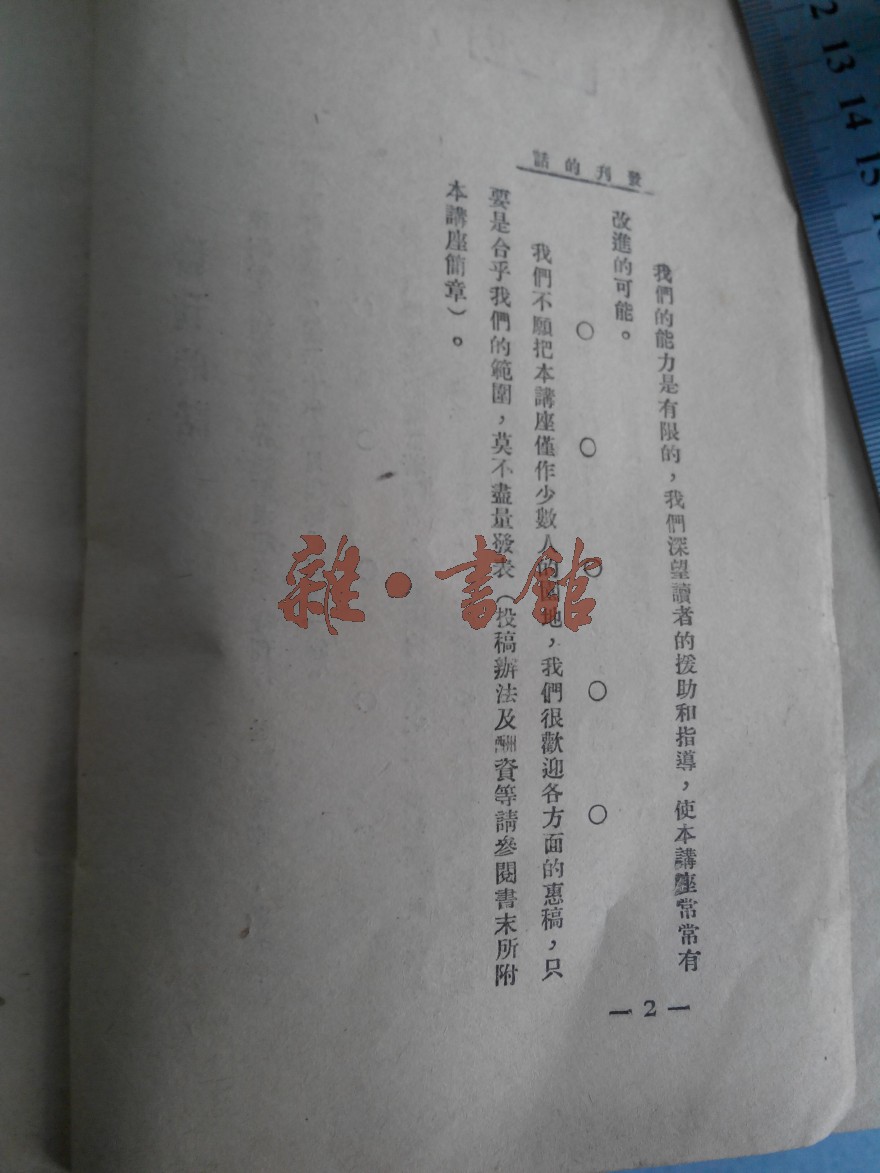 發刊的話
我們的能力是有限的，我們深望讀者的援助和指導，使本講座常常有
改進的可能。
○　○　○　○　○
我們不願把本講座僅作少數人的園地，我們很歡迎各方面的惠稿，只
要是合乎我們的範圍，莫不盡量發表（投稿辦法及酬資等請參閱書末所附
本講座簡章）。
— 2 —
雜·書館
12
13
14
15